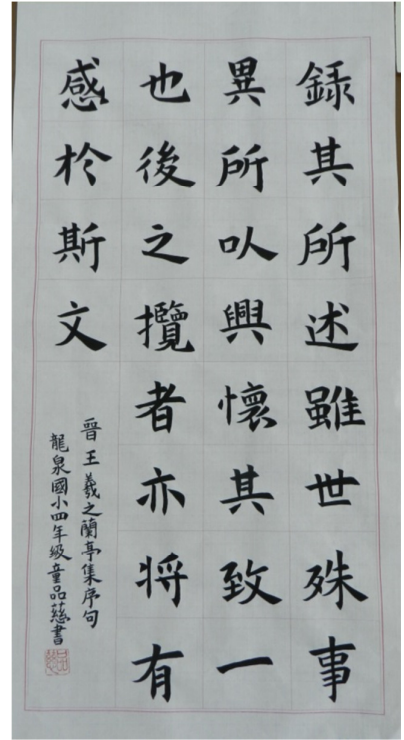 録其所述雖世殊事
異所以興懷其致一
也後之攬者亦将有
感於斯文
晉王羲之蘭亭集序句
龍泉國小四年級童品慈書